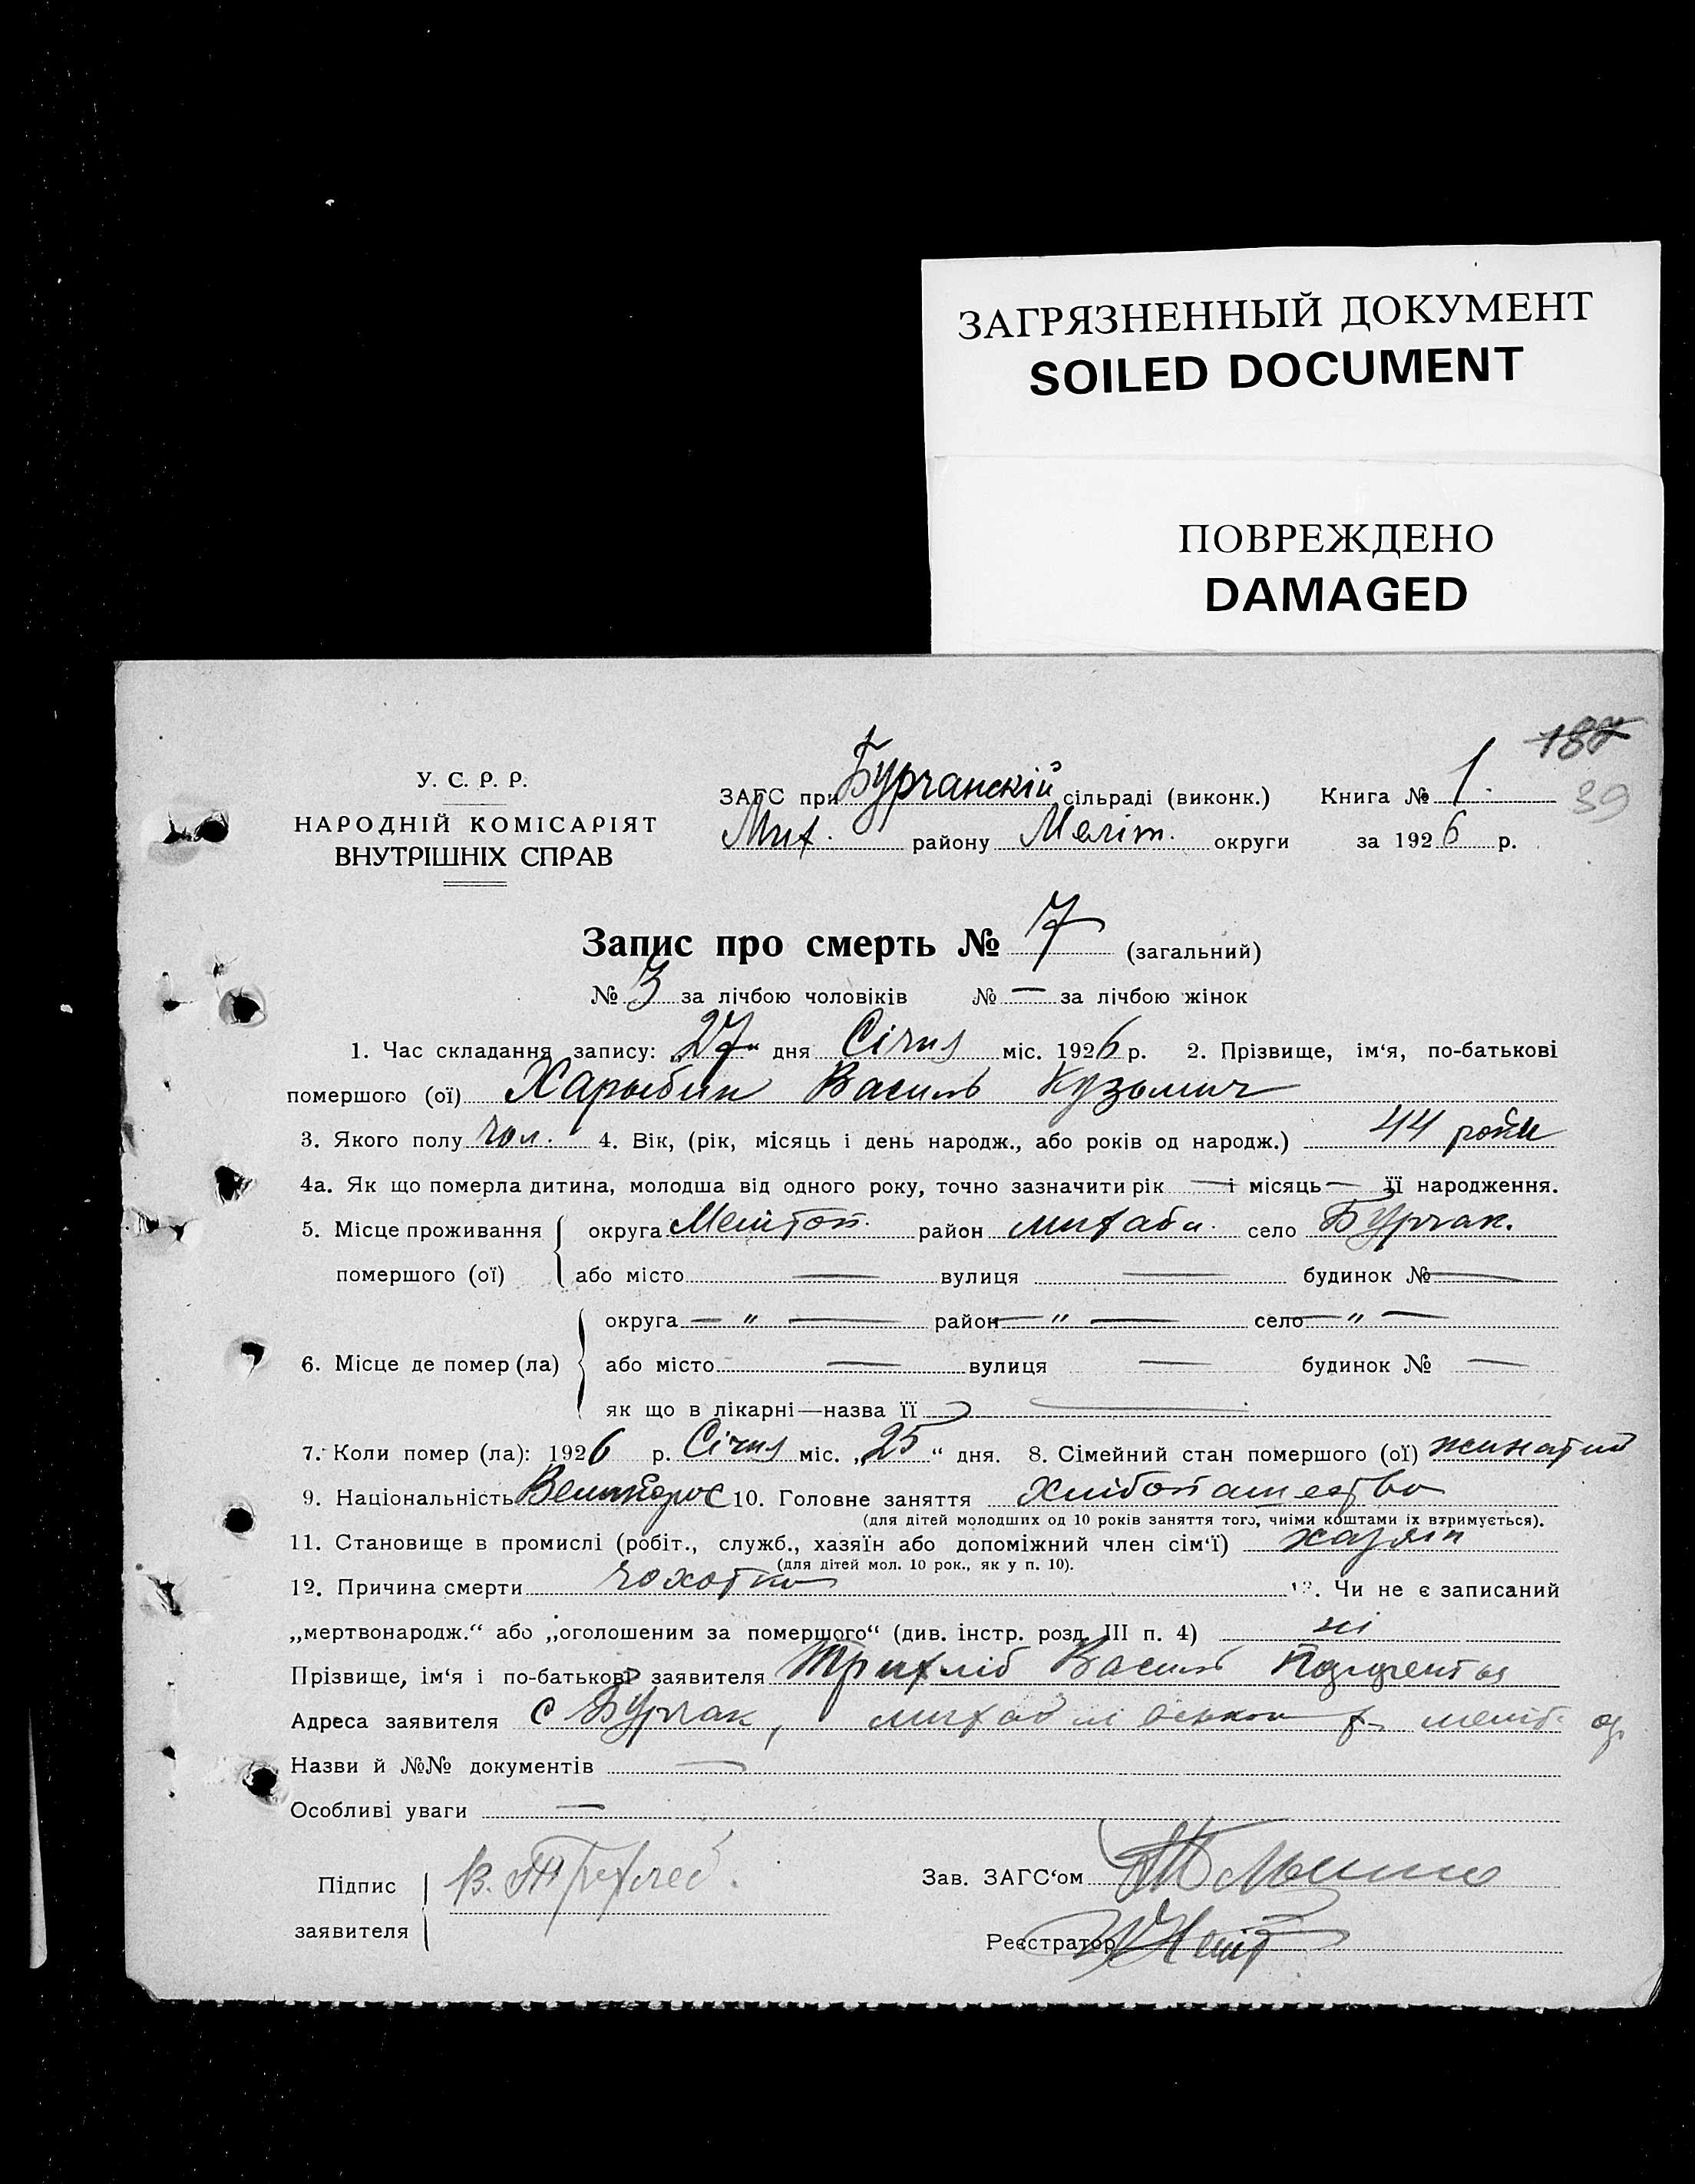 ЗАГРЯЗНЕННЫЙ ДОКУМЕНТ
SOILED DOCUMENT
ПОВРЕЖДЕНО
DAMAGED
187
39
У. С. Р. Р.
НАРОДНІЙ КОМІСАРІЯТ
ВНУТРІШНІХ СПРАВ
ЗАГС при Бурчанскій сільраді (виконк.) Книга № 1.
Мих. району Меліт. округи за 1926 р.
Запис про смерть № 7 (загальний)
№ 3 за лічбою чоловіків № — за лічбою жінок
1. Час складання запису: „27“ дня Січня міс. 1926 р. 2. Прізвище, ім‘я, по-батькові
помершого (ої) Харыбин Василь Кузьмич
3. Якого полу чол. 4. Вік, (рік, місяць і день народж., або років од народж.) 44 роки
4а. Як що померла дитина, молодша від одного року, точно зазначити рік — і місяць — її народження.
5. Місце проживання округа Меліт район михайл. село Бурчак.
помершого (ої) або місто — вулиця — будинок № —
округа — „ — район — „ — село — „ —
6. Місце де помер (ла) або місто — вулиця — будинок № —
як що в лікарні—назва її —
7. Коли помер (ла): 1926 р. Січня міс. „25“ дня. 8. Сімейний стан помершого (ої) жинатий
9. Національність Великорос 10. Головне заняття Хлібопашество
(для дітей молодших од 10 років заняття того, чиїми коштами їх втримується).
11. Становище в промислі (робіт., служб., хазяїн або допоміжний член сім‘ї) хазяін
(для дітей мол. 10 рок., як у п. 10).
12. Причина смерти чохотка 13. Чи не є записаний
„мертвонародж.“ або „оголошеним за помершого“ (див. інстр. розд. III п. 4) ні
Прізвище, ім‘я і по-батькові заявителя Трихліб Василь
Адреса заявителя с Бурчак,
Назви й №№ документів —
Особливі уваги —
Підпис В. Трихлеб. Зав. ЗАГС‘ом
заявителя
Реєстратор